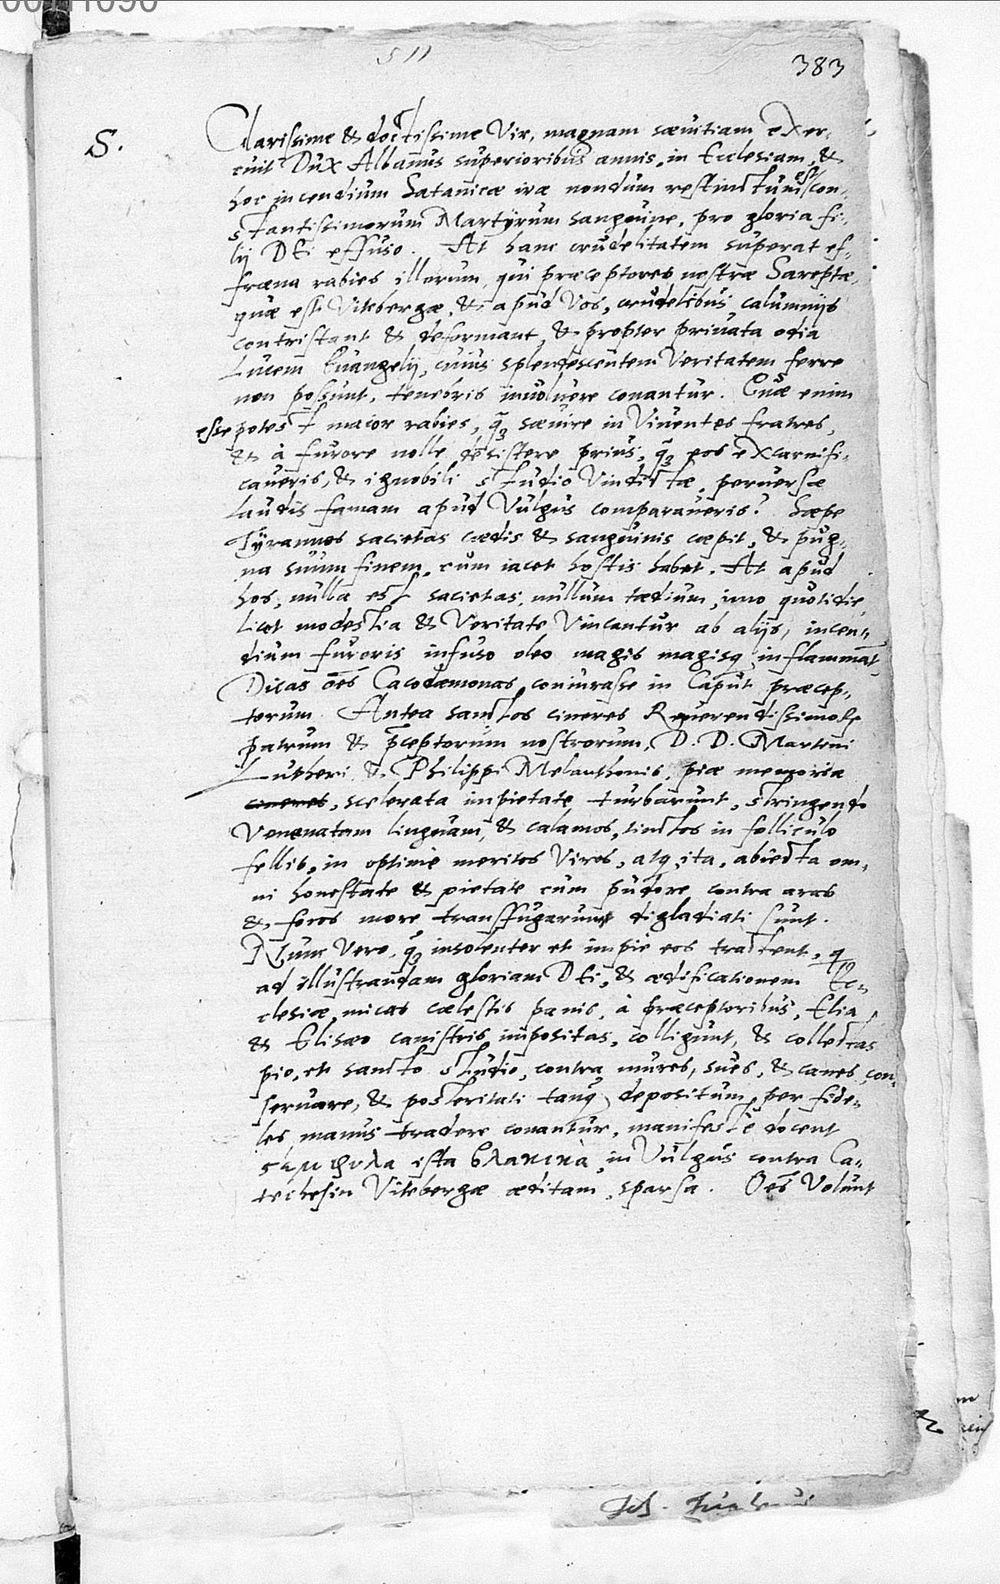 511
383
S.
Clarissime & doctissime Vir, magnam sæuitiam exer-
cuit Dux Albanus superioribus annis, in Ecclesiam, &
hoc incendium Satanicæ iræ nondum restinctum est con-
stantissimorum Martÿrum sanguine, pro gloria fi-
lij DEi effuso. At hanc crudelitatem superat ef-
fræna rabies illorum, qui præceptores nostræ Sareptæ,
quæ est Vitebergæ, & apud Vos, crudelibus calumnijs
contristant & deformant, & propter priuata odia
Lucem Euangelij, cuius splendescentem Veritatem ferre
non possunt, tenebris inuoluere conantur. Quæ enim
esse potest maior rabies, q̃ꝫ sæuire in Viuentes fratres,
& à furore nolle desistere prius, q̃ꝫ eos excarnifi-
caueris, & ignobili studio Vindictæ, peruersæ
laudis famam apud Vulgus comparaueris? Sæpe
Tÿrannos sacietas cædis & sanguinis cœpit, & pug-
na suum finem, cum iacet hostis habet. At apud
hos, nulla est sacietas, nullum tædium, imo quotidie,
licet modestia & Veritate Vincantur ab alijs, incen-
dium furoris infuso oleo magis magisq̃ inflammāt
Dicas oēs Cacodæmonas coniurasse in Caput præcep-
torum. Antea sanctos cineres Reuerendissimorum
patrum & p̄ceptorum nostrorum, D. D. Martini
Lutheri & Philippi Melanthonis, piæ memoriæ
cineres, scelerata impietate turbarunt, stringendo
Venenatam linguam, & calamos, tinctos in folliculo
fellis, in optimè meritos Viros, atq̃ ita, abiecta om-
ni honestate & pietate cum pudore contra aras
& focos more transfugarum digladiati sunt.
Num Vero, q̃ꝫ insolenter et impiè eos tractent, q
ad illustrandam gloriam DEi, & ædificationem Ec-
clesiæ, micas cælestis panis, à præceptoribus, Elia,
& Elisæo canistris impositas, colligunt, & collectas
pio, et sancto studio, contra mures, sues, & canes con-
seruare, & posteritati tanq̃ depositum, per fide-
les manus tradere conantur, manifestè docent
ista in Vulgus contra Ca-
techesin Vitebergæ æditam, sparsa. Oēs Volunt